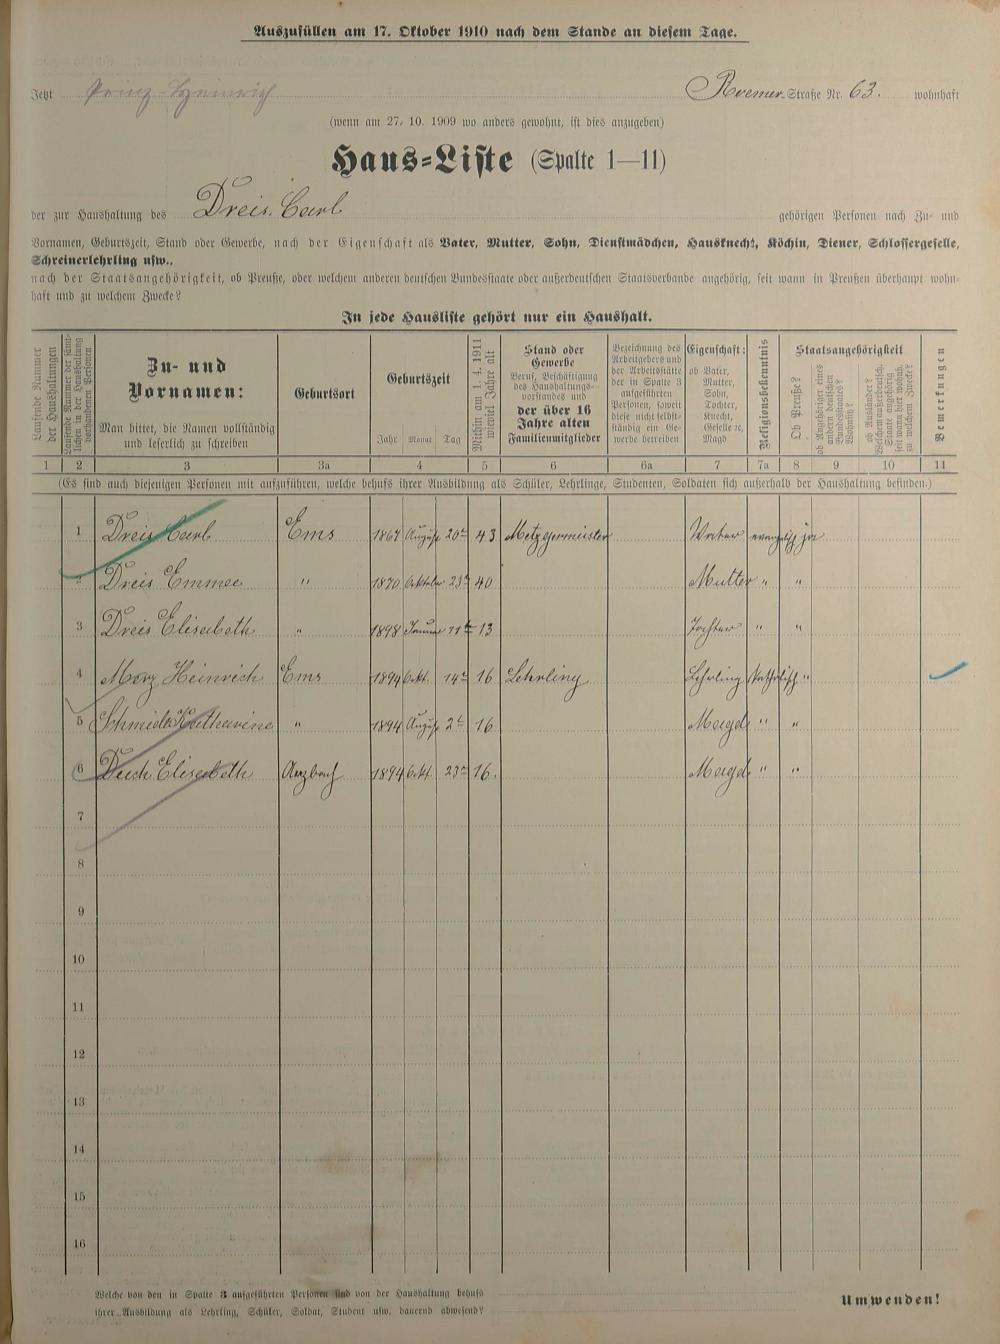 Auszufüllen am 17. Oktober 1910 nach dem Stande an diesem Tage.
Jetzt Prinz-Heinrich Roemer-Straße Nr. 63. wohnhaft
(wenn am 27. 10. 1909 wo anders gewohnt, ist dies anzugeben)
Haus-Liste (Spalte 1—11)
der zur Haushaltung des Dreis, Carl gehörigen Personen nach Zu- und
Vornamen, Geburtszeit, Stand oder Gewerbe, nach der Eigenschaft als Vater, Mutter, Sohn, Dienstmädchen, Hausknecht, Köchin, Diener, Schlossergeselle,
Schreinerlehrling usw.,
nach der Staatsangehörigkeit, ob Preuße, oder welchem anderen deutschen Bundesstaate oder außerdeutschen Staatsverbande angehörig, seit wann in Preußen überhaupt wohn-
haft und zu welchem Zwecke?
In jede Hausliste gehört nur ein Haushalt.
Laufende Nummer der Haushaltungen
Laufende Nummer der sämtlichen in der Haushaltung vorhandenen Personen
Zu- und
Vornamen:
Man bittet, die Namen vollständig
und leserlich zu schreiben
Geburtsort
Geburtszeit
Jahr Monat Tag
Mithin am 1. 4. 1911
wieviel Jahre alt
Stand oder
Gewerbe
Beruf, Beschäftigung
des Haushaltungs-
vorstandes und
der über 16
Jahre alten
Familienmitglieder
Bezeichnung des
Arbeitgebers und
der Arbeitsstätte
der in Spalte 3
aufgeführten
Personen, soweit
diese nicht selbst-
ständig ein Ge-
werbe betreiben
Eigenschaft:
ob Vater,
Mutter,
Sohn,
Tochter,
Knecht,
Geselle ꝛc,
Magd
Religionsbekenntnis
Staatsangehörigkeit
Ob Preuße?
ob Angehöriger eines
andern deutschen
Bundesstaates?
Wohnsitz?
ob Ausländer?
Welchem außerdeutsch.
Staate angehörig
seit wann hier wohnh.
zu welchem Zwecke?
Bemerkungen
1 2 3 3a 4 5 6 6a 7 7a 8 9 10 11
(Es sind auch diejenigen Personen mit aufzuführen, welche behufs ihrer Ausbildung als Schüler, Lehrlinge, Studenten, Soldaten sich außerhalb der Haushaltung befinden.)
1 Dreis Carl Ems 1867 August 20t 43 Metzgermeister Vater evangelisch ja
2 Dreis Emmee " 1870 Oktober 23t 40 Mutter " "
3 Dreis Elisabeth " 1898 Januar 11t 13 Tochter " "
4 Merz Heinrich Ems 1894 Okt. 14t 16 Lehrling Lehrling katholisch "
5 Schmidt Katharina " 1894 August 2t 16 Magd " "
6 Elisabeth Arzbach 1894 Okt. 23t 16. Magd " "
7
8
9
10
11
12
13
14
15
16
Welche von den in Spalte 3 aufgeführten Personen sind von der Haushaltung behufs
ihrer Ausbildung als Lehrling, Schüler, Soldat, Student usw. dauernd abwesend?
Umwenden!